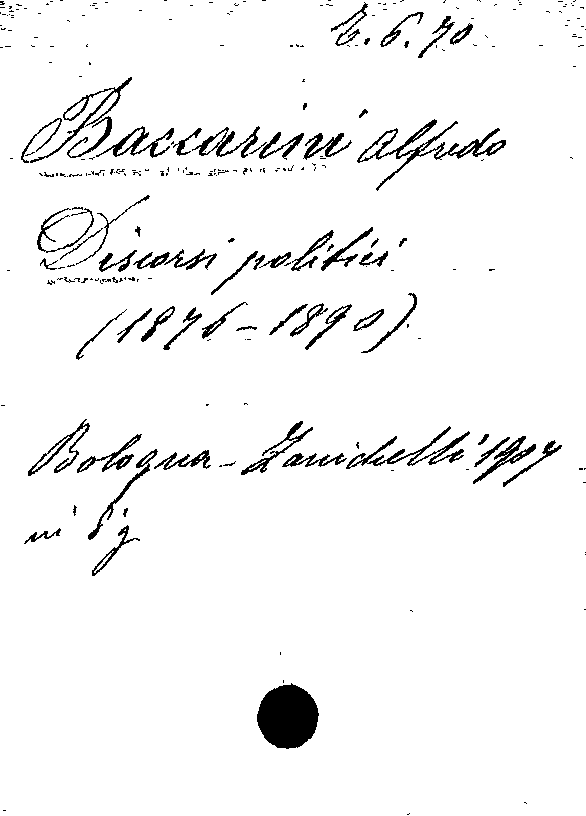 E. 6. 70
Baccarini Alfredo
Discorsi politici
(1876-1890)
Bologna - Zanichelli 1907
in 8° g